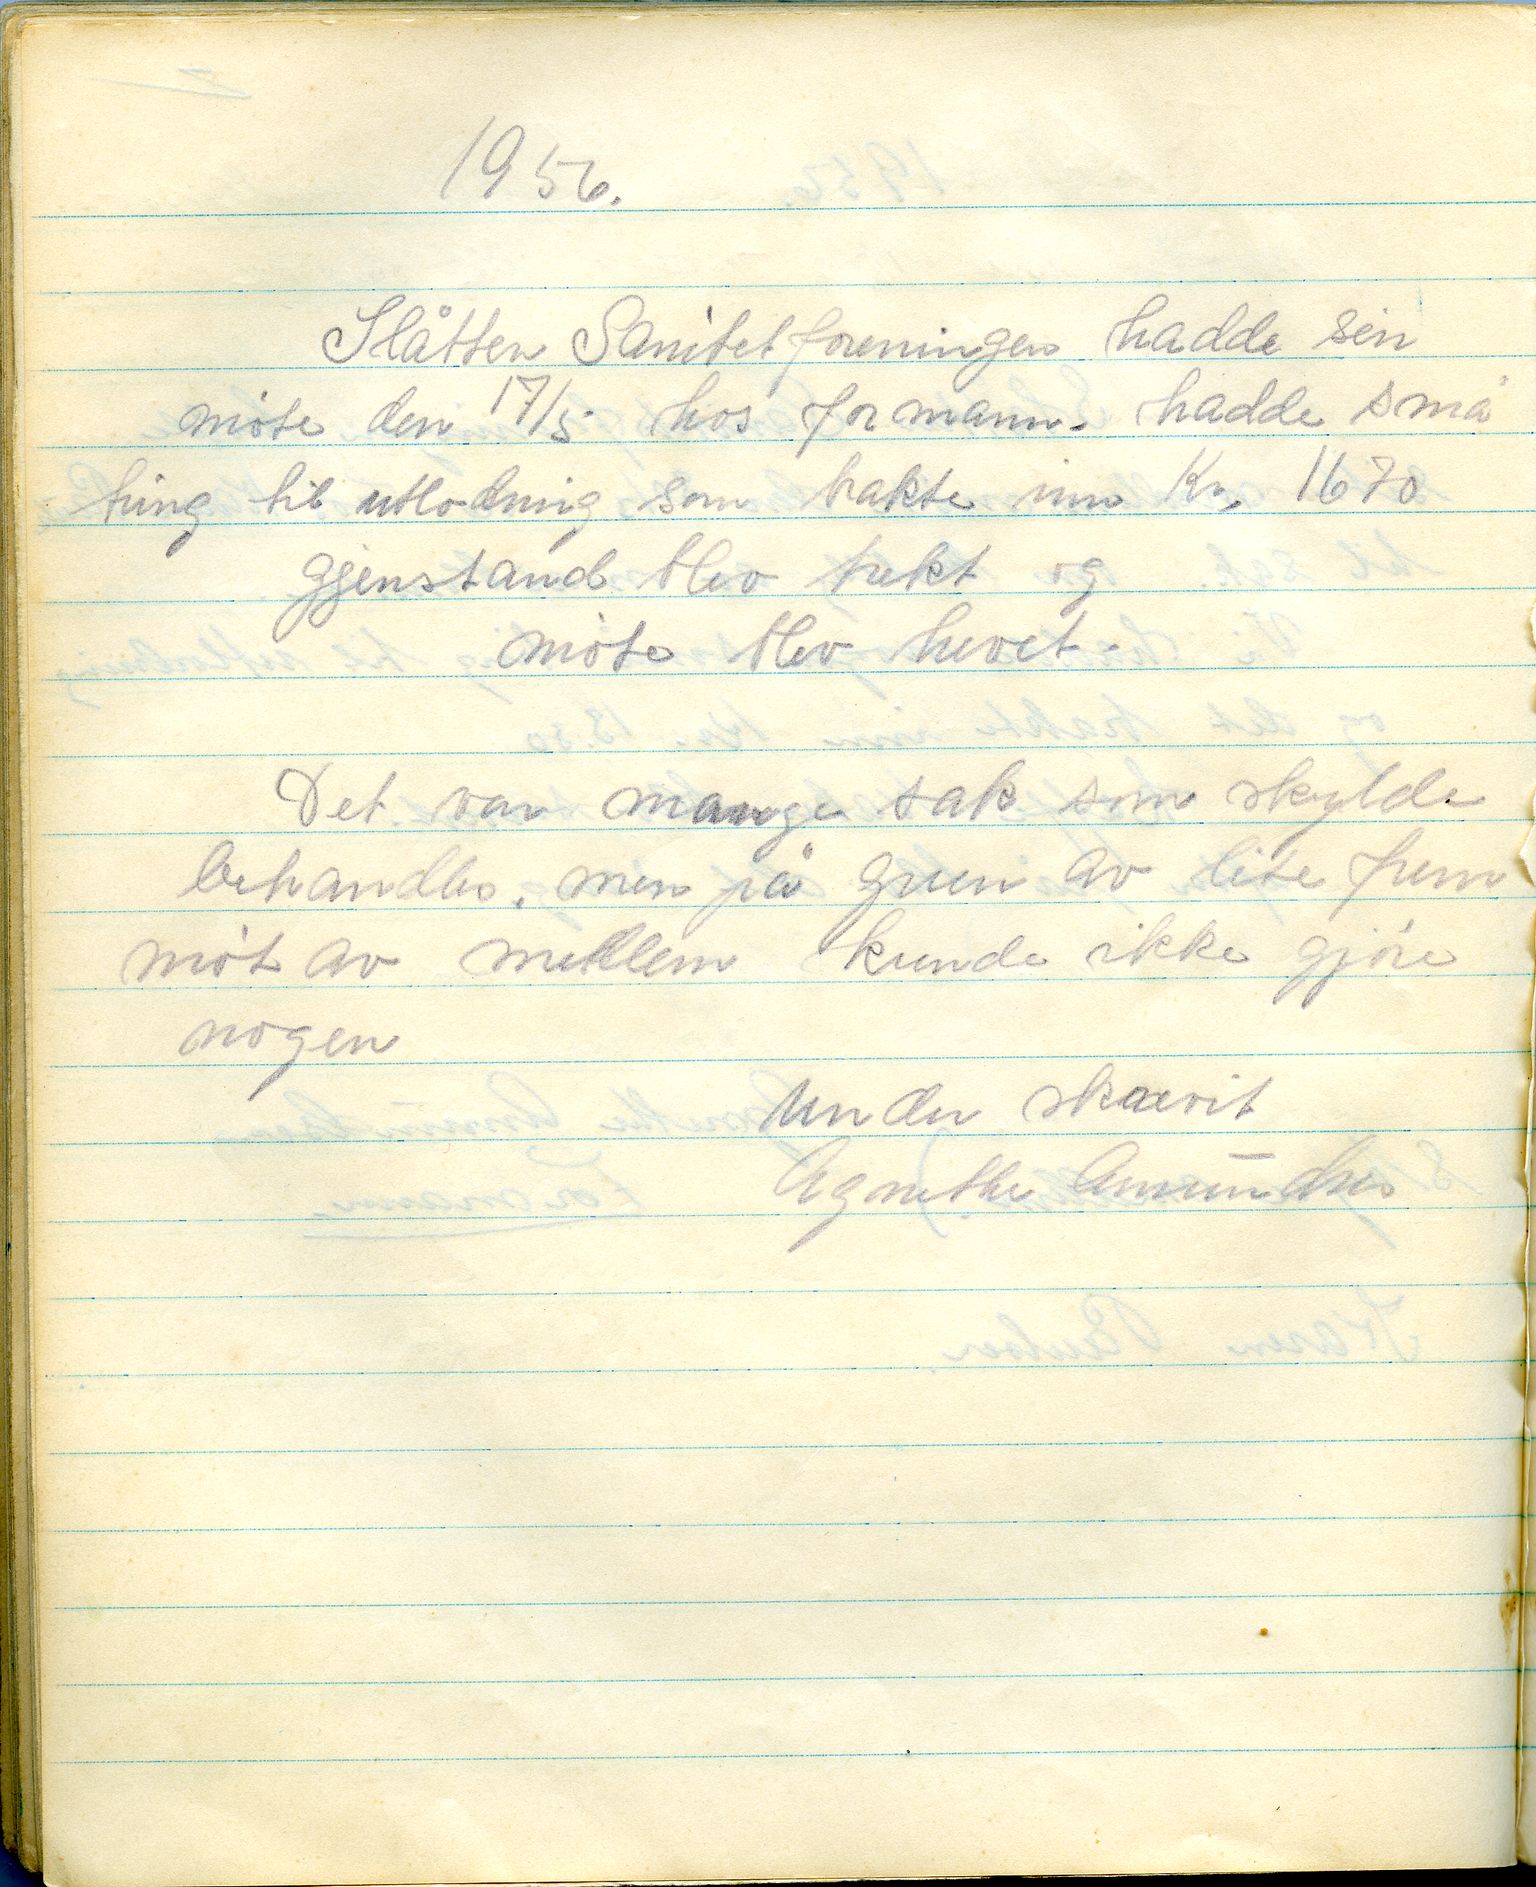 1956.
Slåtten Sanitetforeningen hadde sin
møte den 17/5 hos formann. hadde små
ting til utlodning som trakte inn Kr. 1670
gjenstand blev trekt og
møte blev hevet.
Det var mange sak som skylde
behandles. men på grun av lite frem
møt av mellem kunde ikke gjøre
nogen
Under skrevit
Agnethe Amundsen